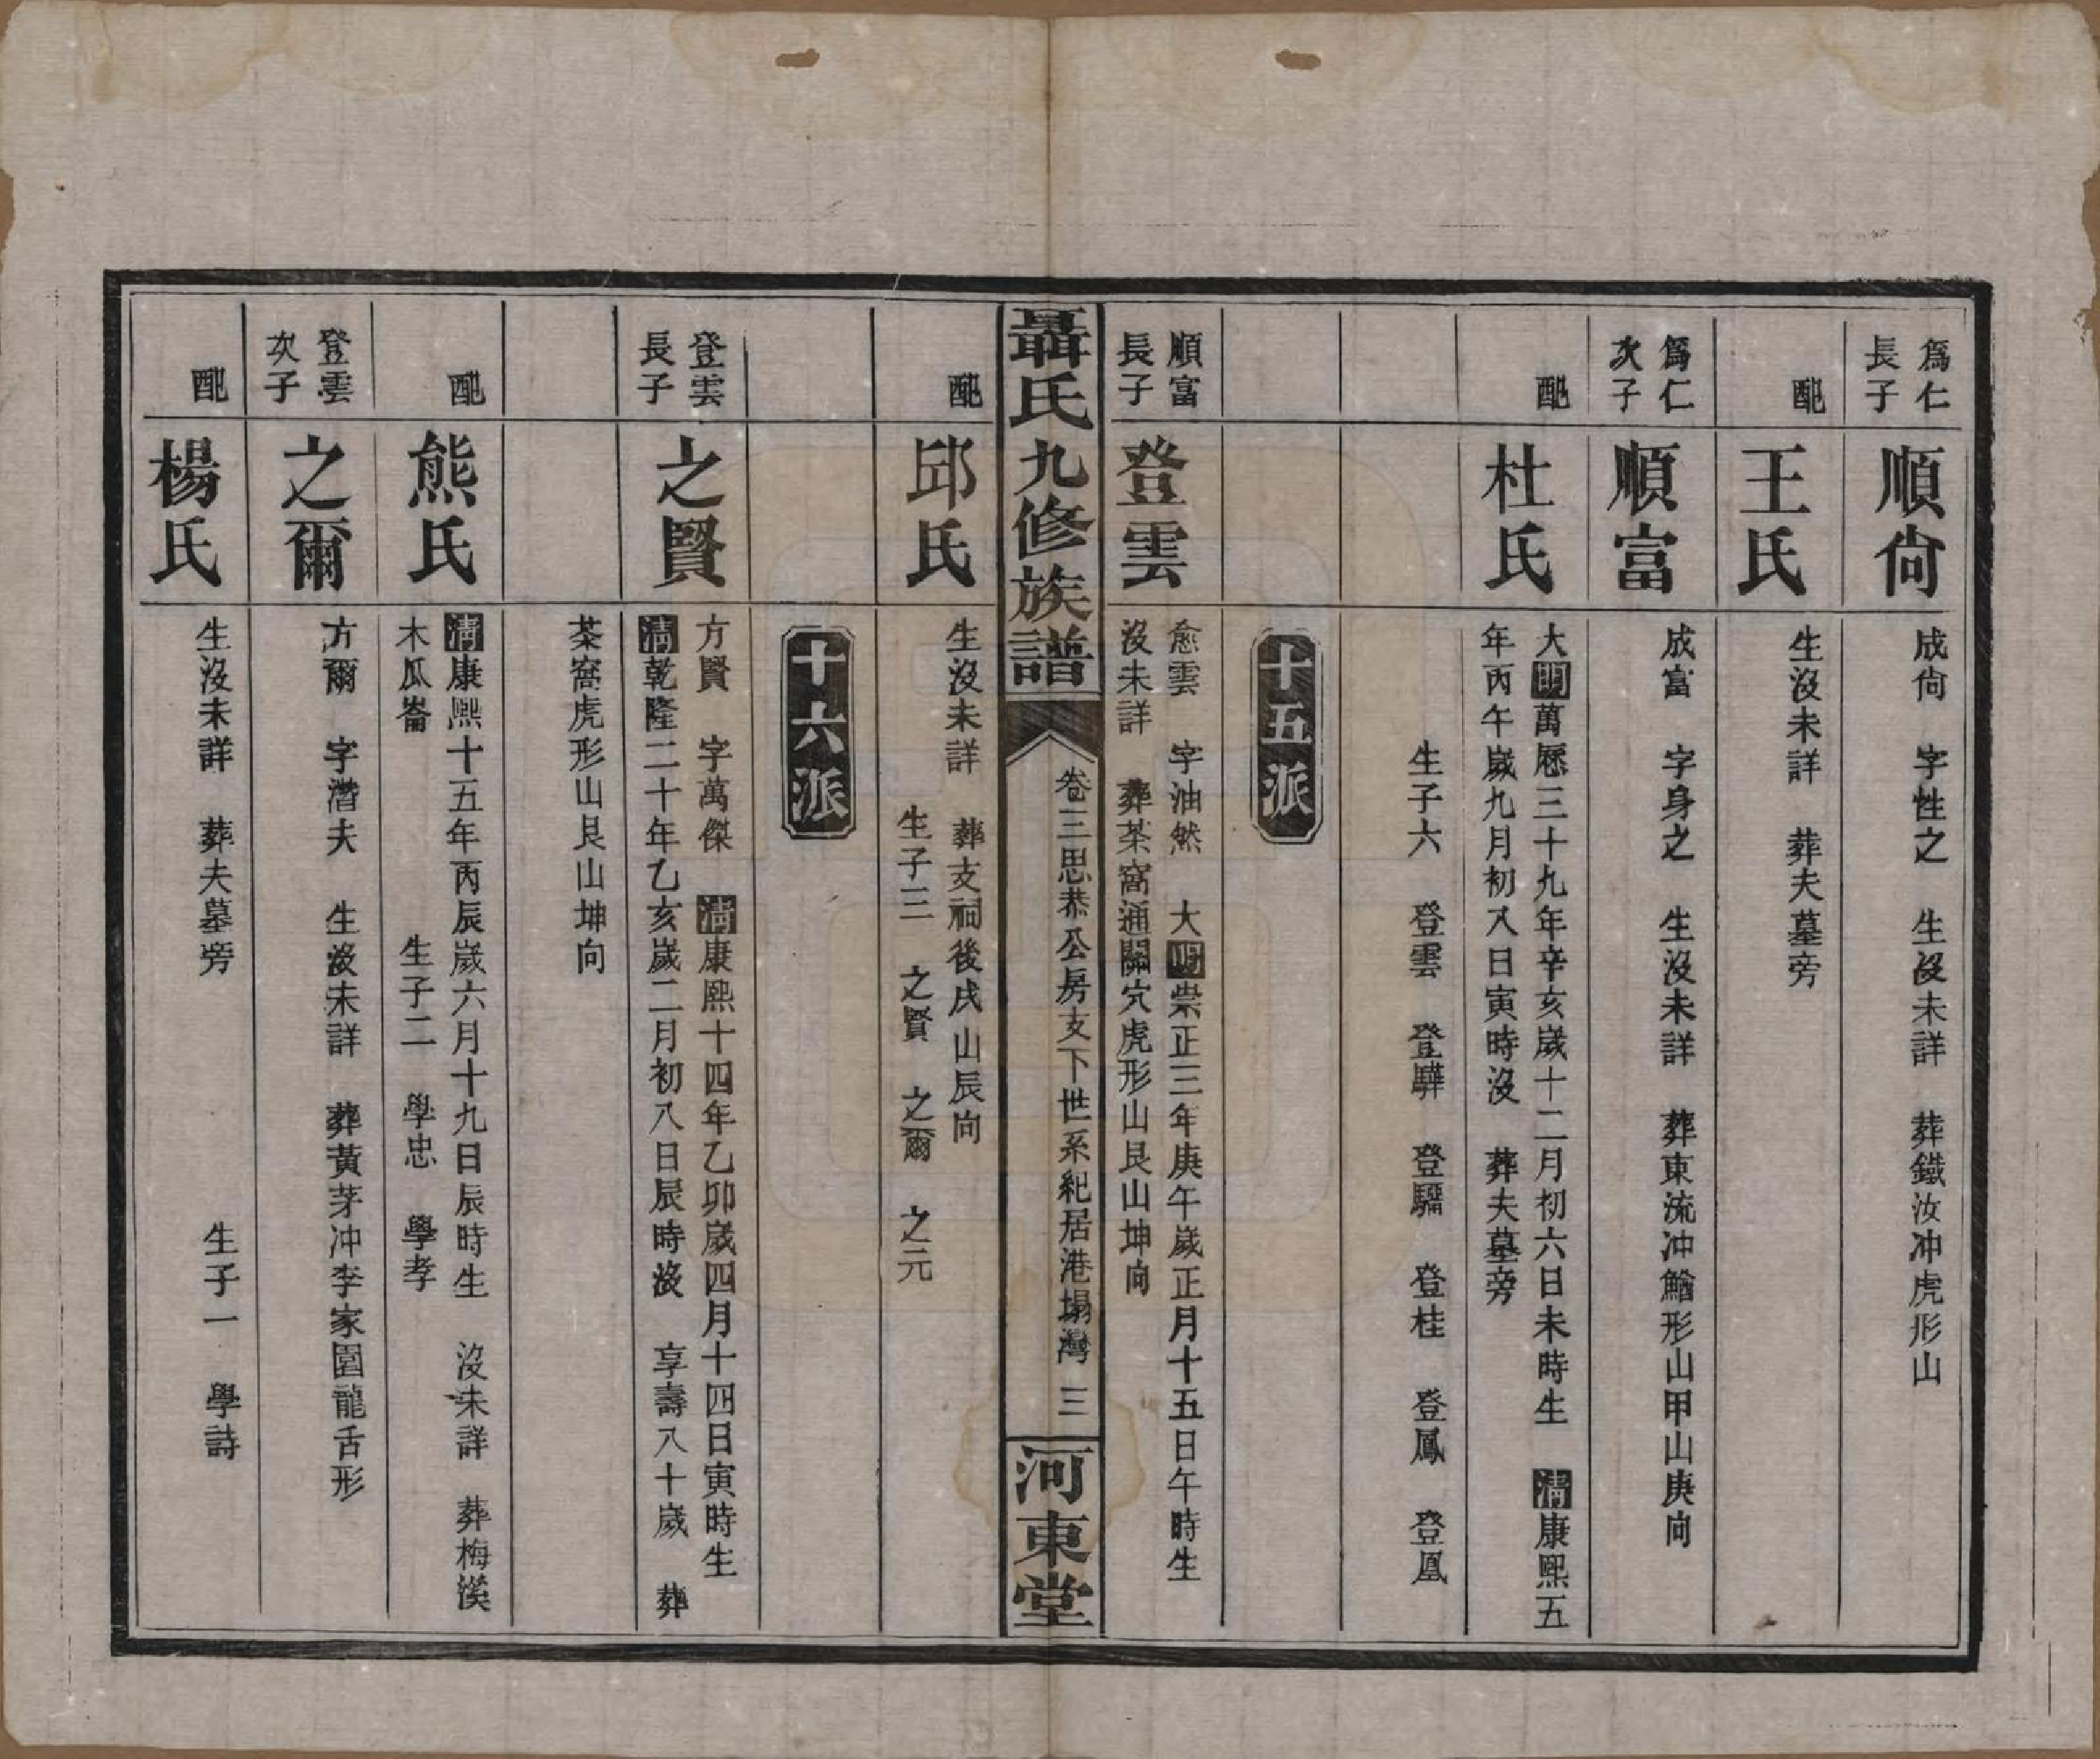 爲仁
長子
順尙
成尙　字性之　生沒未詳　葬鐵汝冲虎形山
配
王氏
生沒未詳　葬夫墓旁
爲仁
次子
順富
成富　字身之　生沒未詳　葬東流冲鰌形山甲山庚向
配
杜氏
大明萬曆三十九年辛亥歲十二月初六日未時生　清康熙五
年丙午歲九月初八日寅時沒　葬夫墓旁
生子六　登雲　登驊　登騮　登桂　登鳳　登凰
十五派
順富
長子
登雲
愈雲　字油然　大明崇正三年庚午歲正月十五日午時生
沒未詳　葬茶窩通關穴虎形山艮山坤向
聶氏九修族譜
卷三思恭公房支下世系紀居港塌灣　三
河東堂
配
邱氏
生沒未詳　葬支祠後戌山辰向
生子三　之賢　之爾　之元
十六派
登雲
長子
之賢
方賢　字萬傑　清康熙十四年乙卯歲四月十四日寅時生
清乾隆二十年乙亥歲二月初八日辰時沒　享壽八十歲　葬
茶窩虎形山艮山坤向
配
熊氏
清康熙十五年丙辰歲六月十九日辰時生　沒未詳　葬梅溪
木瓜崙　生子二　學忠　學孝
登雲
次子
之爾
方爾　字潛夫　生沒未詳　葬黃茅冲李家園龍舌形
配
楊氏
生沒未詳　葬夫墓旁　生子一　學詩